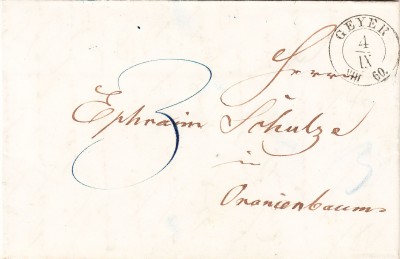 GEYER
4
IX
VIII 60.
Herrn
3
Ephraim Schulze
in
Oranienbaum